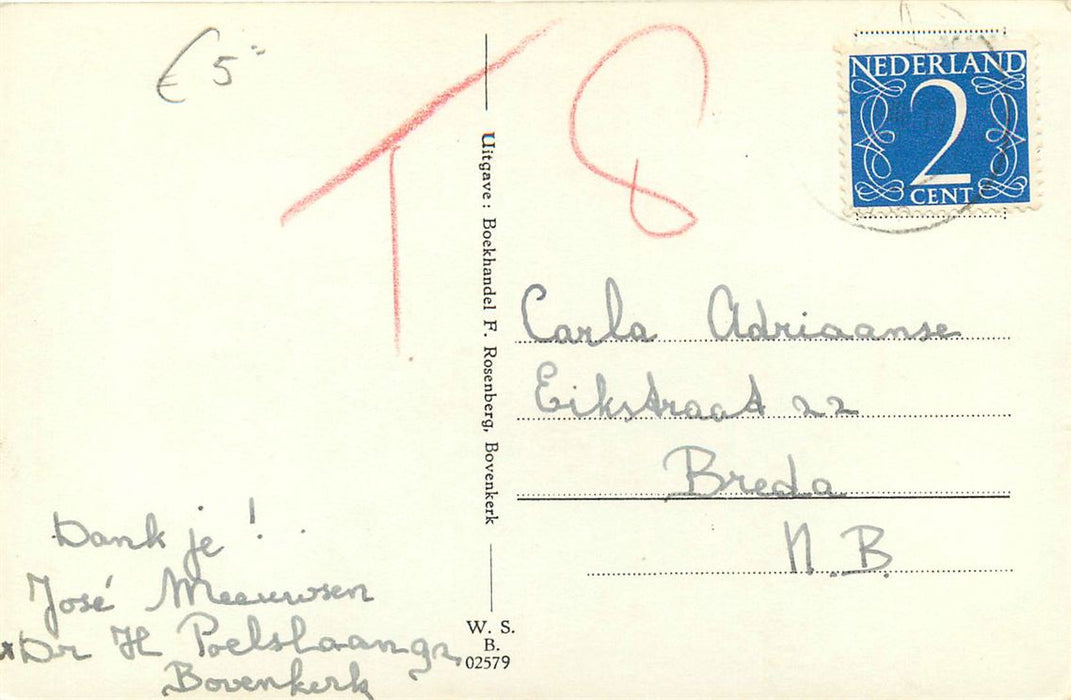 € 5=
T 8
NEDERLAND
2
CENT
Uitgave: Boekhandel F. Rosenberg, Bovenkerk
Carla Adriaanse
Eikstraat 22
Breda
N.B.
Dank je!
José Meeuwsen
Dr H
Bovenkerk
W. S.
B.
02579